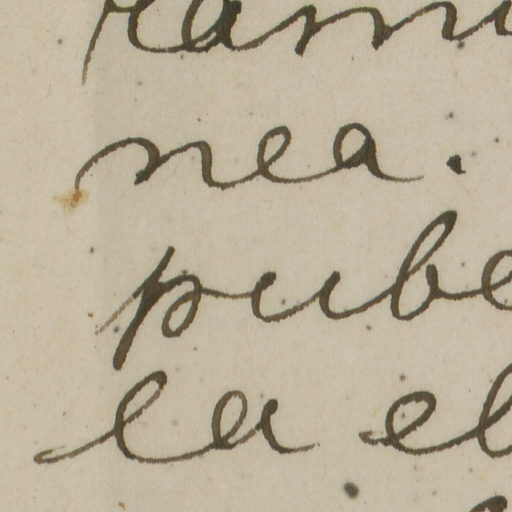 nea.
pube
la el